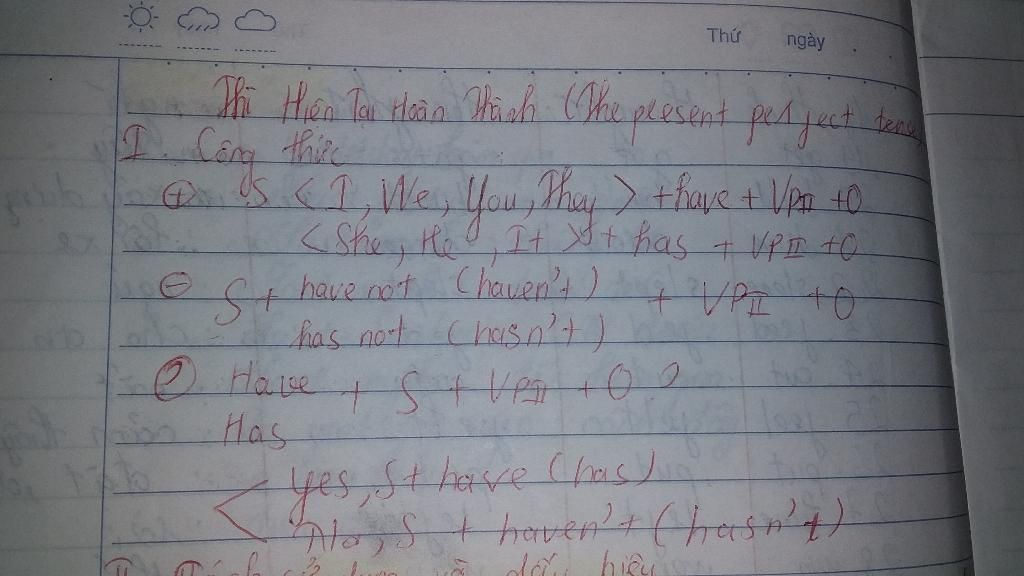 Thứ ngày
Thì Hiện Tại Hoàn Thành (The present perfect tense
I. Công thức
(+) S < I, We, You, They > + have + VPII + O
< She, He, It > + has + VPII + O
(-) S + have not (haven't) + VPII + O
has not (hasn't)
(?) Have + S + VPII + O ?
Has
< yes, S + have (has)
No, S + haven't (hasn't)
II. Cách sử dụng và dấu hiệu